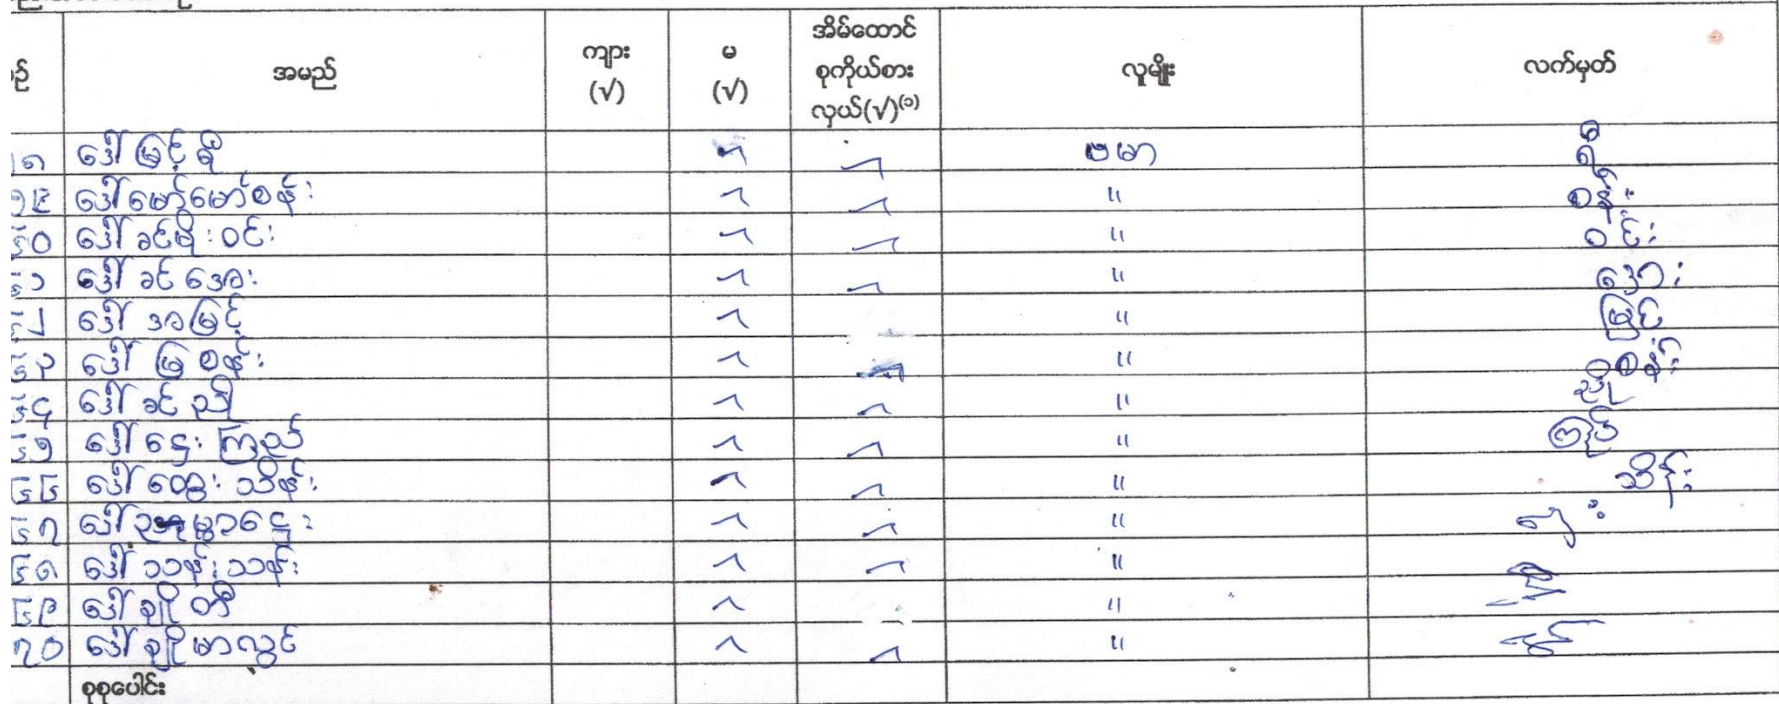 စဉ် အမည် ကျား (√) မ (√) အိမ်ထောင်စုကိုယ်စားလှယ်(√)⁽¹⁾ လူမျိုး လက်မှတ်
ဒေါ်မြင့်ရီ ဗမာ ရီ
၅၉ ဒေါ်မော်မော်စန်း " စန်း
၆၀ ဒေါ်ခင်မိုးဝင်း " ဝင်း
၆၁ ဒေါ်ခင်အေး " အေး
၆၂ ဒေါ်အာမြင့် " မြင့်
၆၃ ဒေါ်မြစန်း " စန်း
၆၄ ဒေါ်ခင်ညို " ညို
၆၅ ဒေါ်ဌေးကြည် " ကြည်
၆၆ ဒေါ်ထွေးသိန်း " သိန်း
၆၇ "
၆၈ ဒေါ်သန်းသန်း "
၆၉ ဒေါ်ချိုတီ "
၇၀ ဒေါ်ချိုမာလွင် "
စုစုပေါင်း